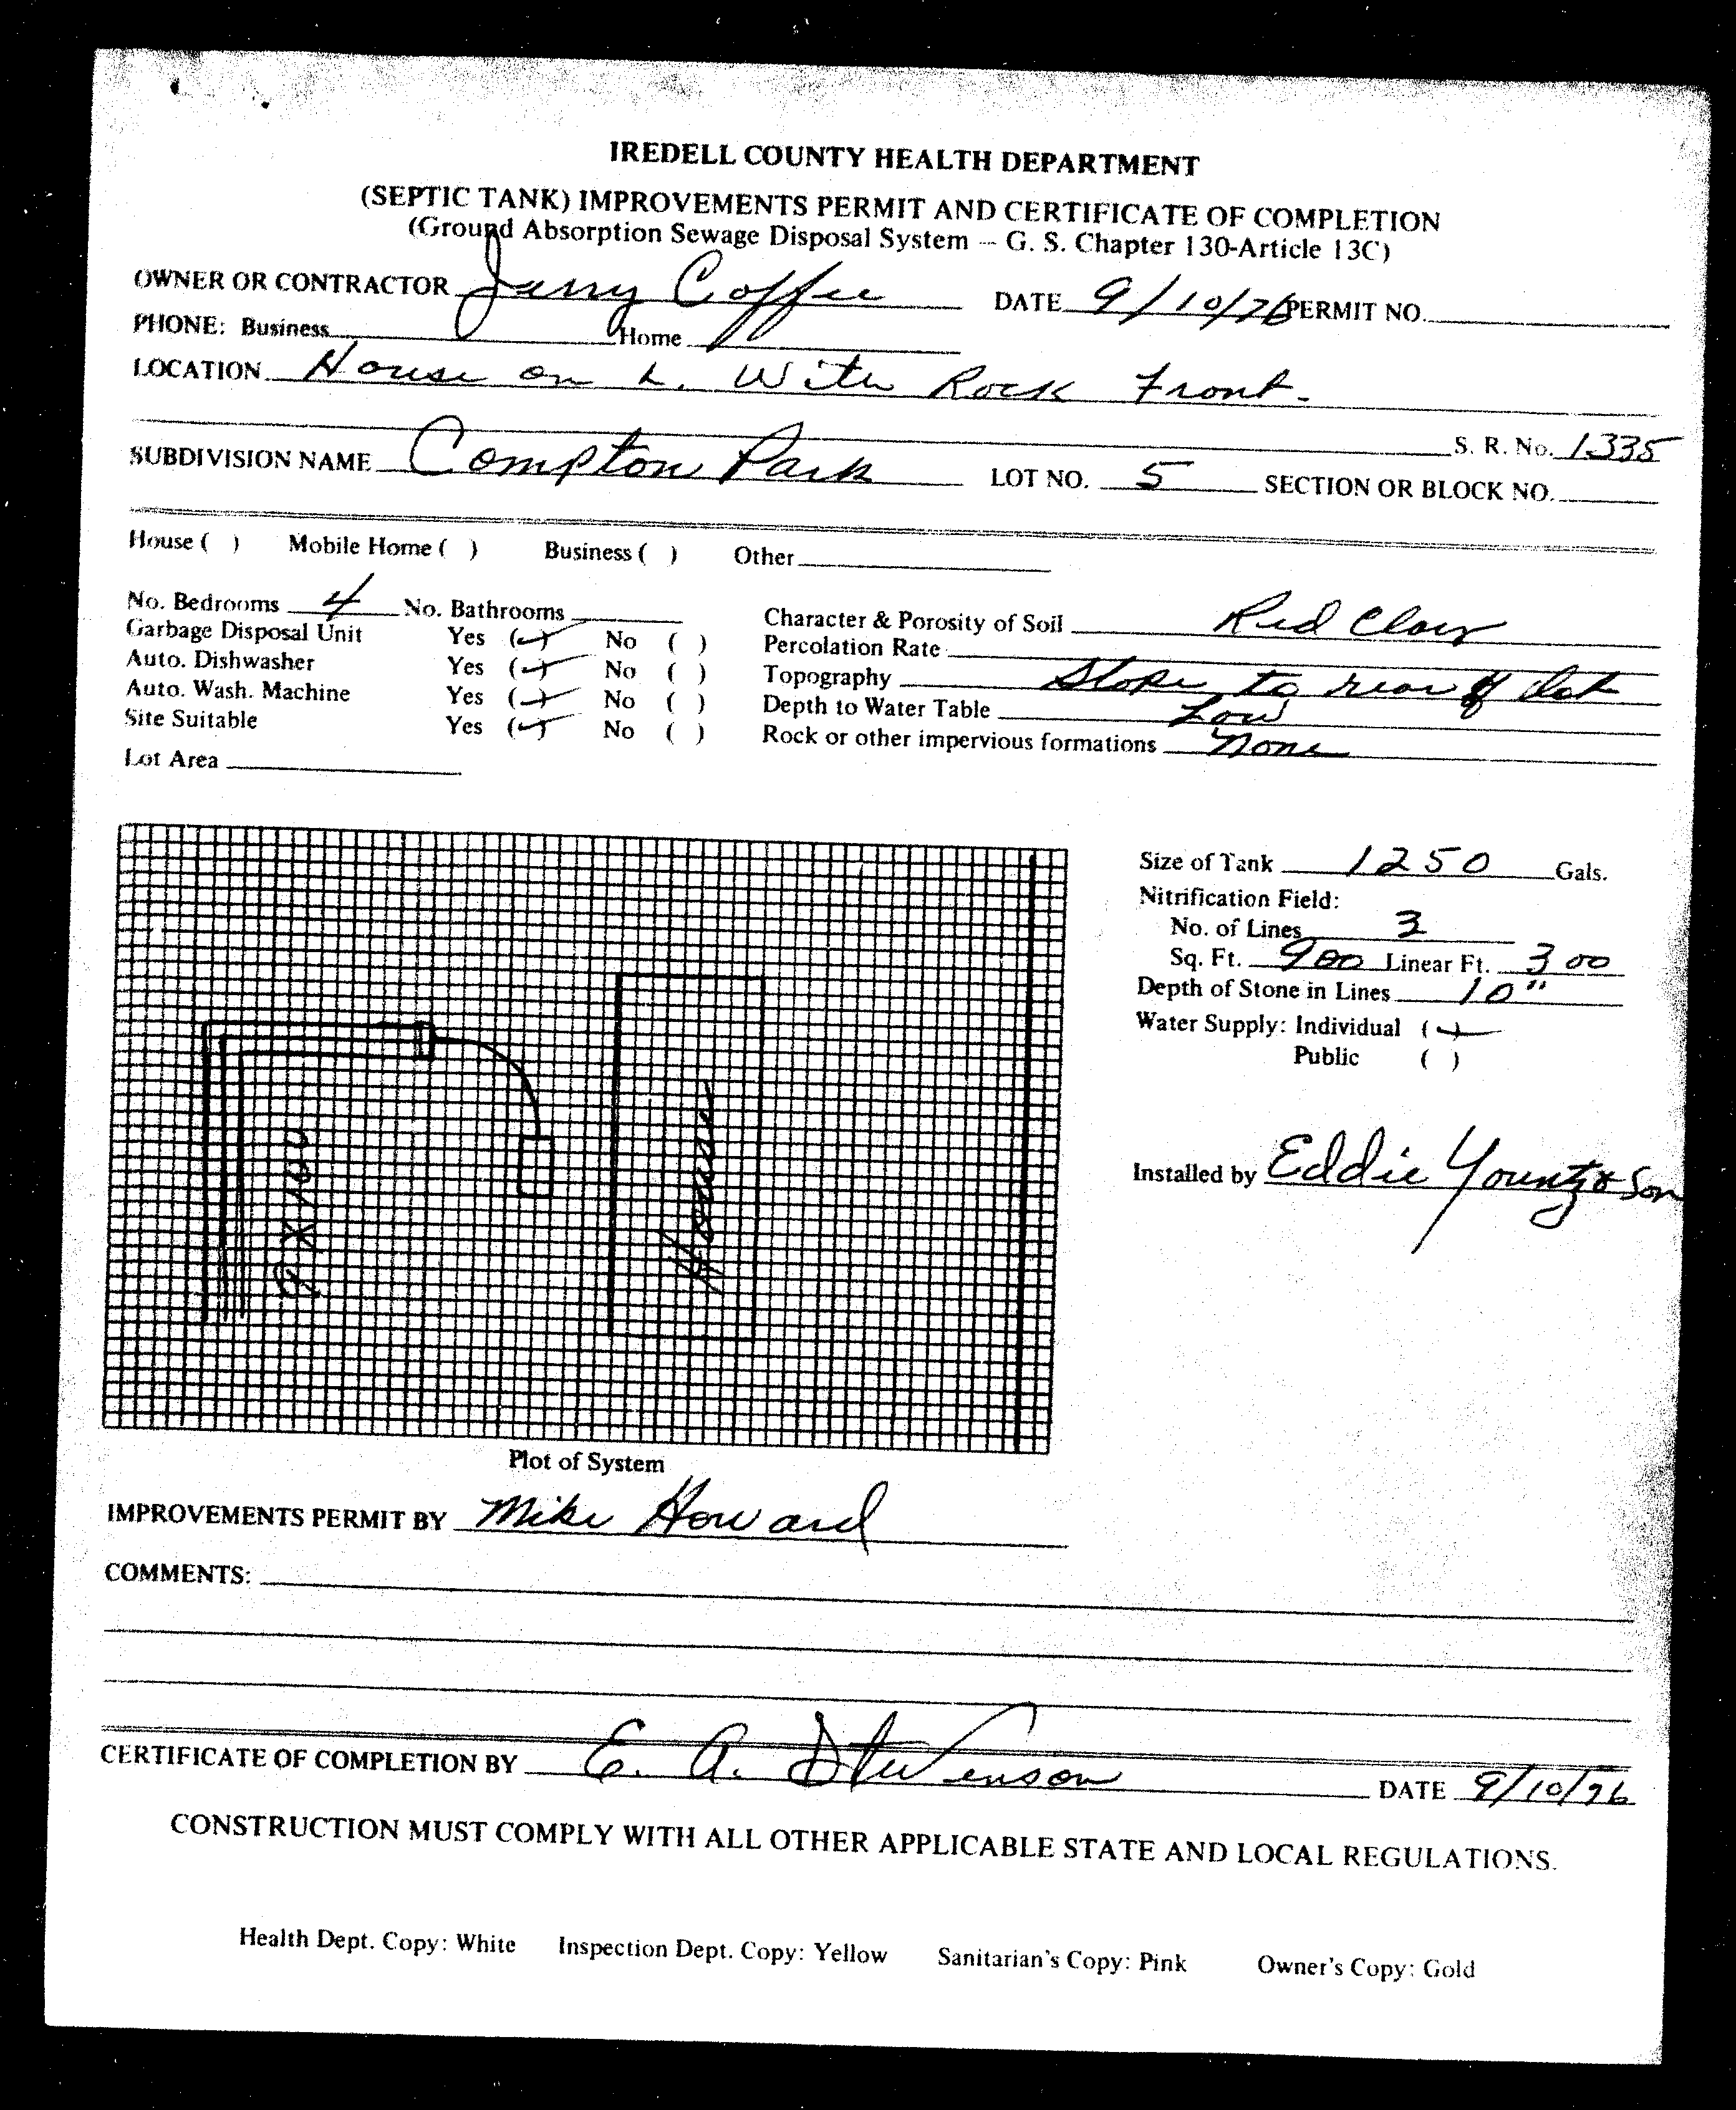 IREDELL COUNTY HEALTH DEPARTMENT
(SEPTIC TANK) IMPROVEMENTS PERMIT AND CERTIFICATE OF COMPLETION
(Ground Absorption Sewage Disposal System -- G. S. Chapter 130-Article 13C)
OWNER OR CONTRACTOR Jerry Coffee DATE 9/10/76 PERMIT NO.
PHONE: Business Home
LOCATION House on L. With Rock Front.
S. R. No. 1335
SUBDIVISION NAME Compton Park LOT NO. 5 SECTION OR BLOCK NO.
House ( ) Mobile Home ( ) Business ( ) Other
No. Bedrooms 4 No. Bathrooms
Garbage Disposal Unit Yes (✓) No ( )
Auto. Dishwasher Yes (✓) No ( )
Auto. Wash. Machine Yes (✓) No ( )
Site Suitable Yes (✓) No ( )
Lot Area
Character & Porosity of Soil Red Clay
Percolation Rate
Topography Slope to rear of Lot
Depth to Water Table Low
Rock or other impervious formations None
Size of Tank 1250 Gals.
Nitrification Field:
No. of Lines 3
Sq. Ft. 900 Linear Ft. 300
Depth of Stone in Lines 10"
Water Supply: Individual (✓)
Public ( )
Installed by Eddie Yountz & Son
House
Plot of System
IMPROVEMENTS PERMIT BY Mike Howard
COMMENTS:
CERTIFICATE OF COMPLETION BY E. A. Stevenson DATE 9/10/76
CONSTRUCTION MUST COMPLY WITH ALL OTHER APPLICABLE STATE AND LOCAL REGULATIONS.
Health Dept. Copy: White Inspection Dept. Copy: Yellow Sanitarian's Copy: Pink Owner's Copy: Gold